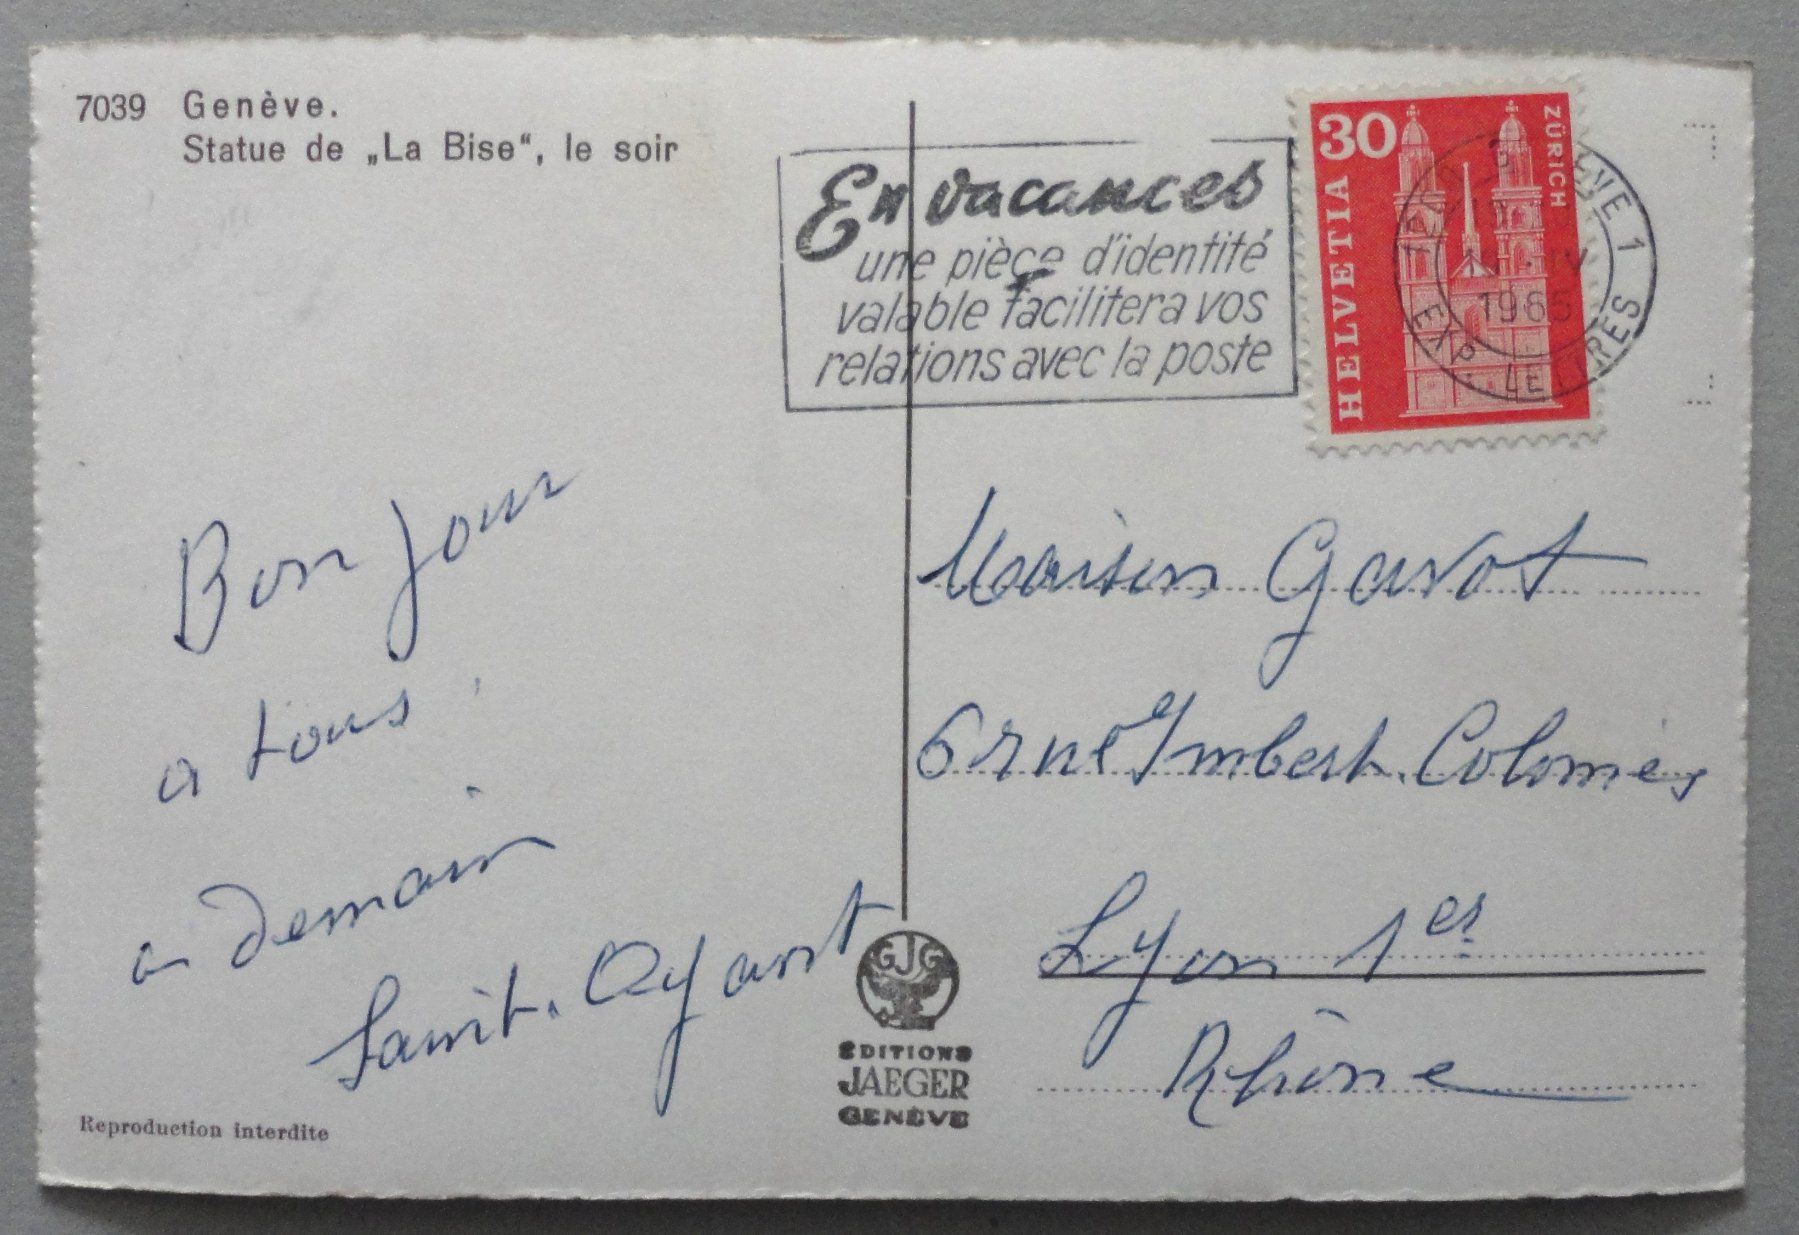 7039 Genève.
Statue de „La Bise“, le soir
En vacances
une pièce d'identité
valable facilitera vos
relations avec la poste
30
HELVETIA
ZÜRICH
1965
EXP. LETTRES
Bonjour
a tous
a demain
Maison Gavot
6 rue Imbert. Colomès
Lyon 1er
Rhône
GJG
EDITIONS
JAEGER
GENÈVE
Reproduction interdite